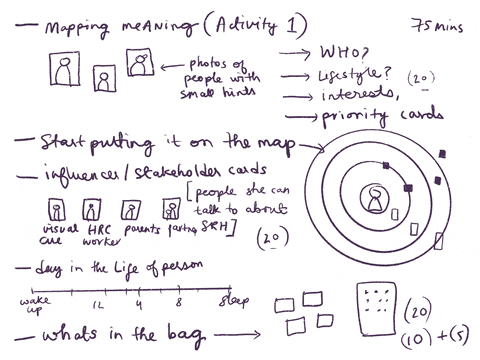 — Mapping meaning (Activity 1) 75 mins
photos of people with small hints
→ WHO?
→ Lifestyle? (20)
→ interests,
→ priority cards
— Start putting it on the map
— influencer/stakeholder cards
[people she can talk to about SRH]
visual cue
HRC worker
parents
(20)
— day in the life of person
wake up 12 4 8 sleep
— whats in the bag →
(20)
(10) + (5)